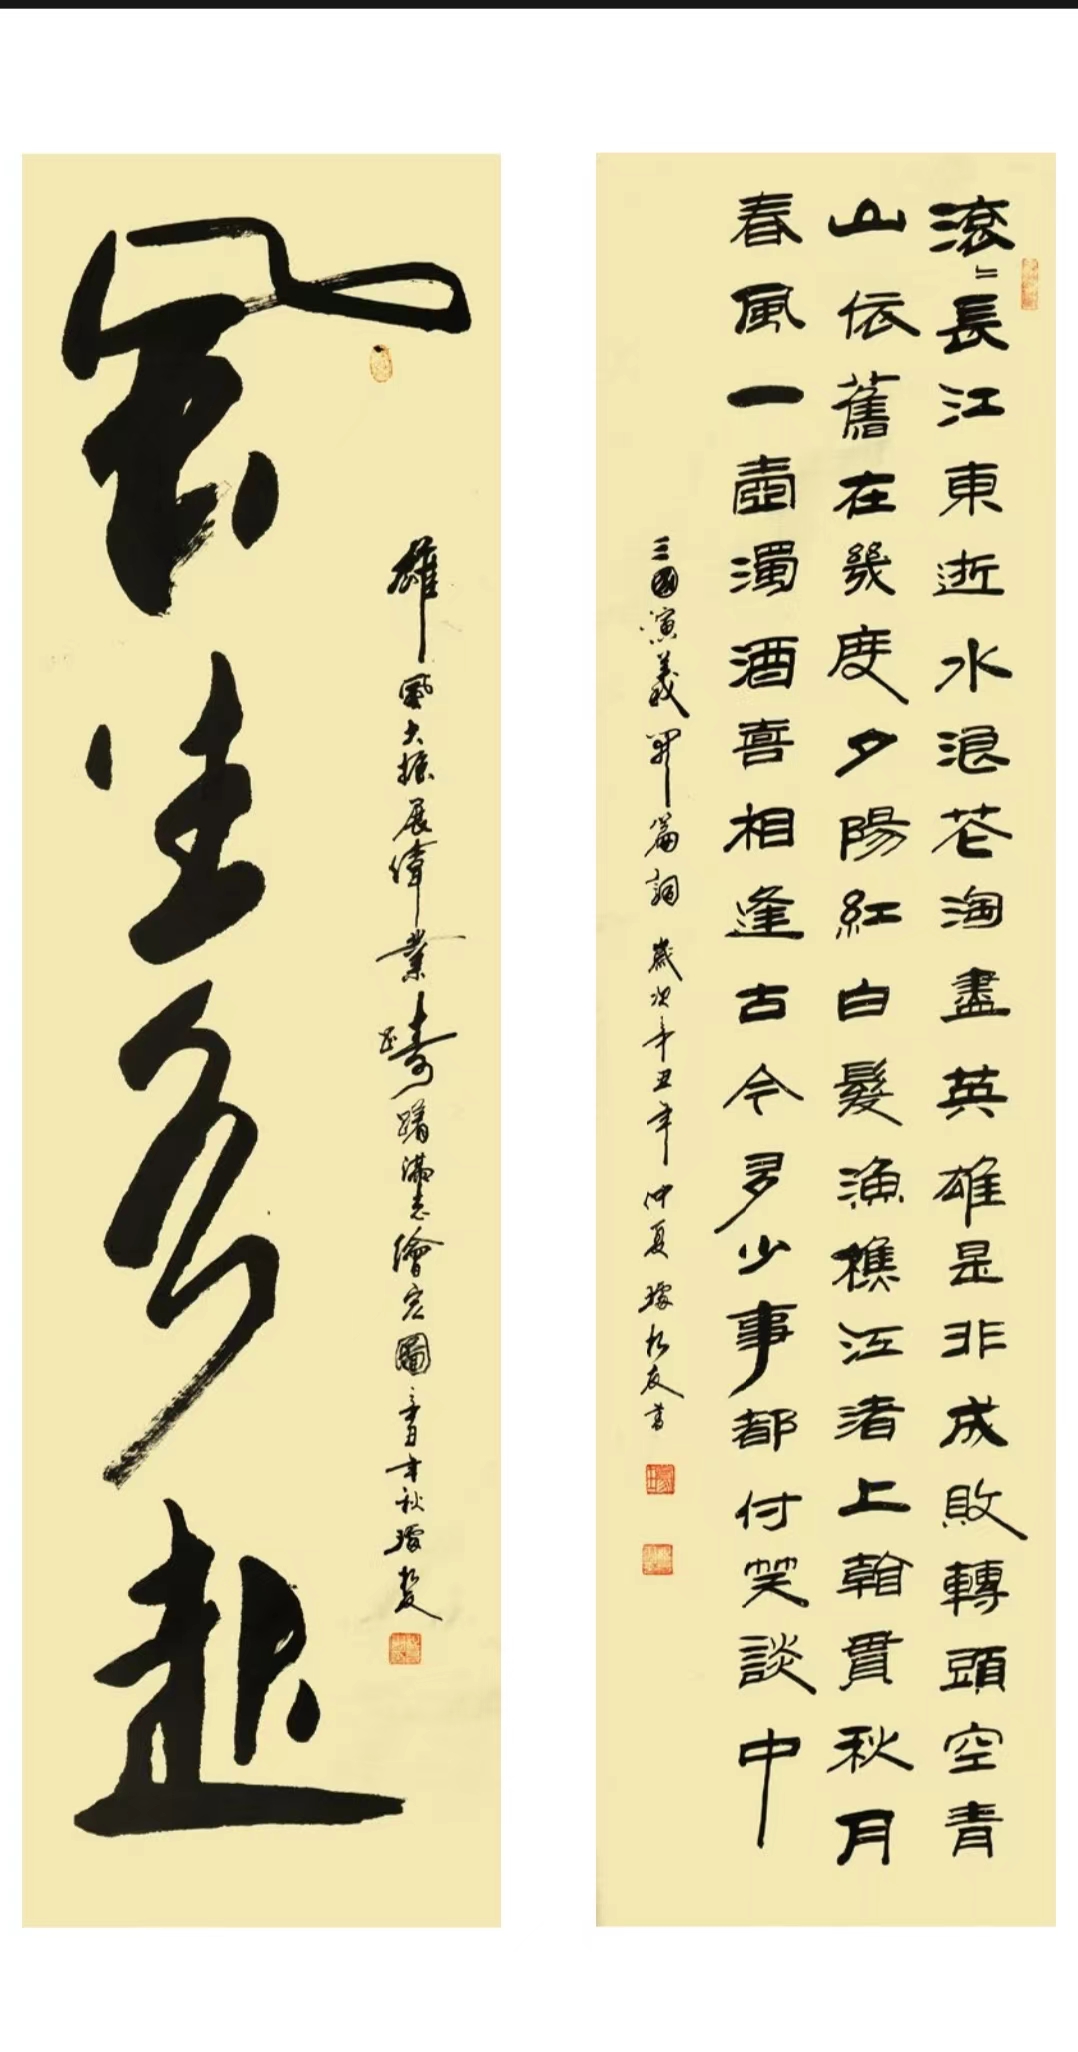 滚〻長江東逝水浪花淘盡英雄是非成敗轉頭空青
山依舊在幾度夕陽紅白髮漁樵江渚上翰貫秋月
春風一壺濁酒喜相逢古今多少事都付笑談中
三國演義開篇詞 歲次辛丑年仲夏 璩松友書
雄風大振展偉業躊躇滿志繪宏圖 年秋 璩